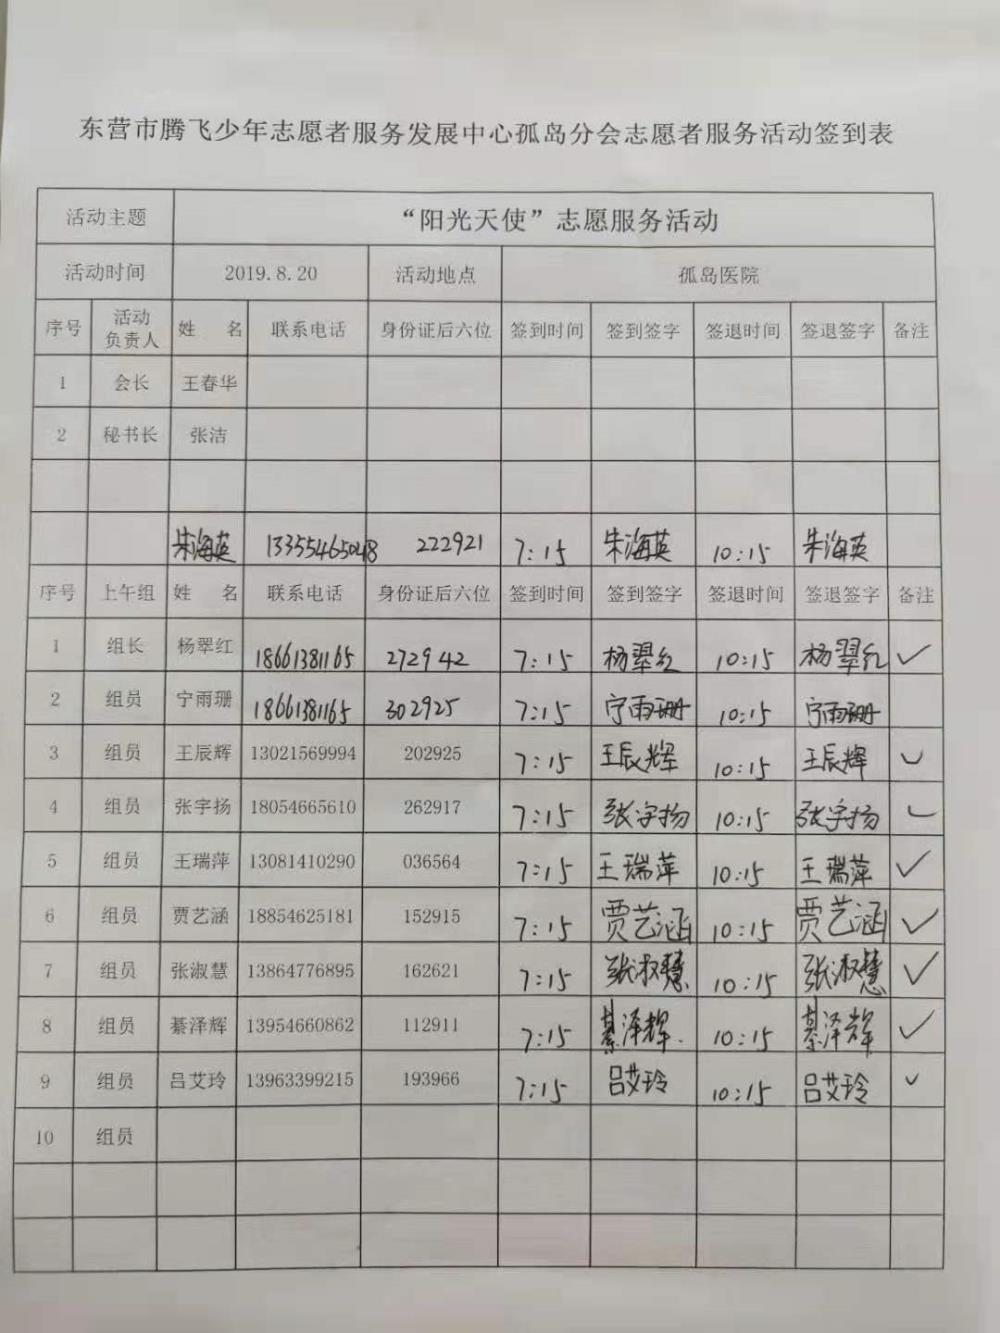 东营市腾飞少年志愿者服务发展中心孤岛分会志愿者服务活动签到表
活动主题 “阳光天使”志愿服务活动
活动时间 2019.8.20 活动地点 孤岛医院
序号 活动负责人 姓 名 联系电话 身份证后六位 签到时间 签到签字 签退时间 签退签字 备注
1 会长 王春华
2 秘书长 张洁
朱海英 13355465048 222921 7:15 朱海英 10:15 朱海英
序号 上午组 姓 名 联系电话 身份证后六位 签到时间 签到签字 签退时间 签退签字 备注
1 组长 杨翠红 18661381165 272942 7:15 杨翠红 10:15 杨翠红 ✓
2 组员 宁雨珊 18661381165 302925 7:15 宁雨珊 10:15 宁雨珊
3 组员 王辰辉 13021569994 202925 7:15 王辰辉 10:15 王辰辉 ✓
4 组员 张宇扬 18054665610 262917 7:15 张宇扬 10:15 张宇扬 ✓
5 组员 王瑞萍 13081410290 036564 7:15 王瑞萍 10:15 王瑞萍 ✓
6 组员 贾艺涵 18854625181 152915 7:15 贾艺涵 10:15 贾艺涵 ✓
7 组员 张淑慧 13864776895 162621 7:15 张淑慧 10:15 张淑慧 ✓
8 组员 綦泽辉 13954660862 112911 7:15 綦泽辉 10:15 綦泽辉 ✓
9 组员 吕艾玲 13963399215 193966 7:15 吕艾玲 10:15 吕艾玲 ✓
10 组员